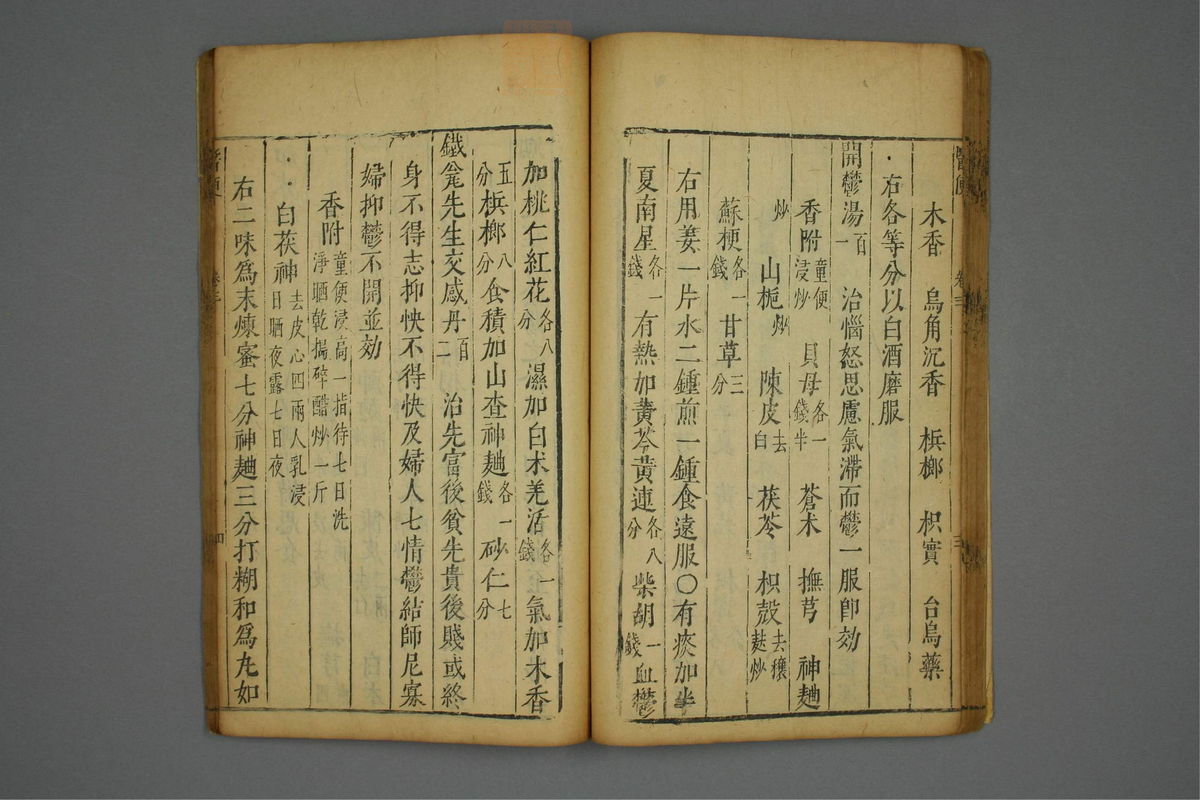 木香　烏角沉香　梹榔　枳實　台烏藥
右各等分以白酒磨服
開鬱湯百一　治惱怒思慮氣滯而鬱一服即効
香附童便浸炒　貝母各一錢半　蒼术　撫芎　神麯
炒　山梔炒　陳皮去白　茯苓　枳殻去穰麸炒
蘇梗各一錢　甘草三分
右用姜一片水二鍾煎一鍾食遠服〇有痰加半
夏南星各一錢有熱加黄芩黄連各八分柴胡一錢血鬱
加桃仁紅花各八分濕加白术羌活各一錢氣加木香
五分梹榔八分食積加山查神麯各一錢砂仁七分
鐵瓮先生交感丹百二　治先富後貧先貴後賤或終
身不得志抑怏不得快及婦人七情鬱結師尼寡
婦抑鬱不開並効
香附童便浸高一指待七日洗淨晒乾搗碎醋炒一斤
白茯神去皮心四兩人乳浸日晒夜露七日夜
右二味爲末煉蜜七分神麯三分打糊和爲丸如